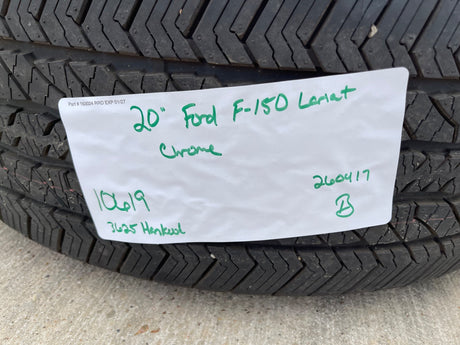 Part # 160004 RRD EXP 01/27
20" Ford F-150 Lariat
Chrome
10619
260417
B
3625 Hankook